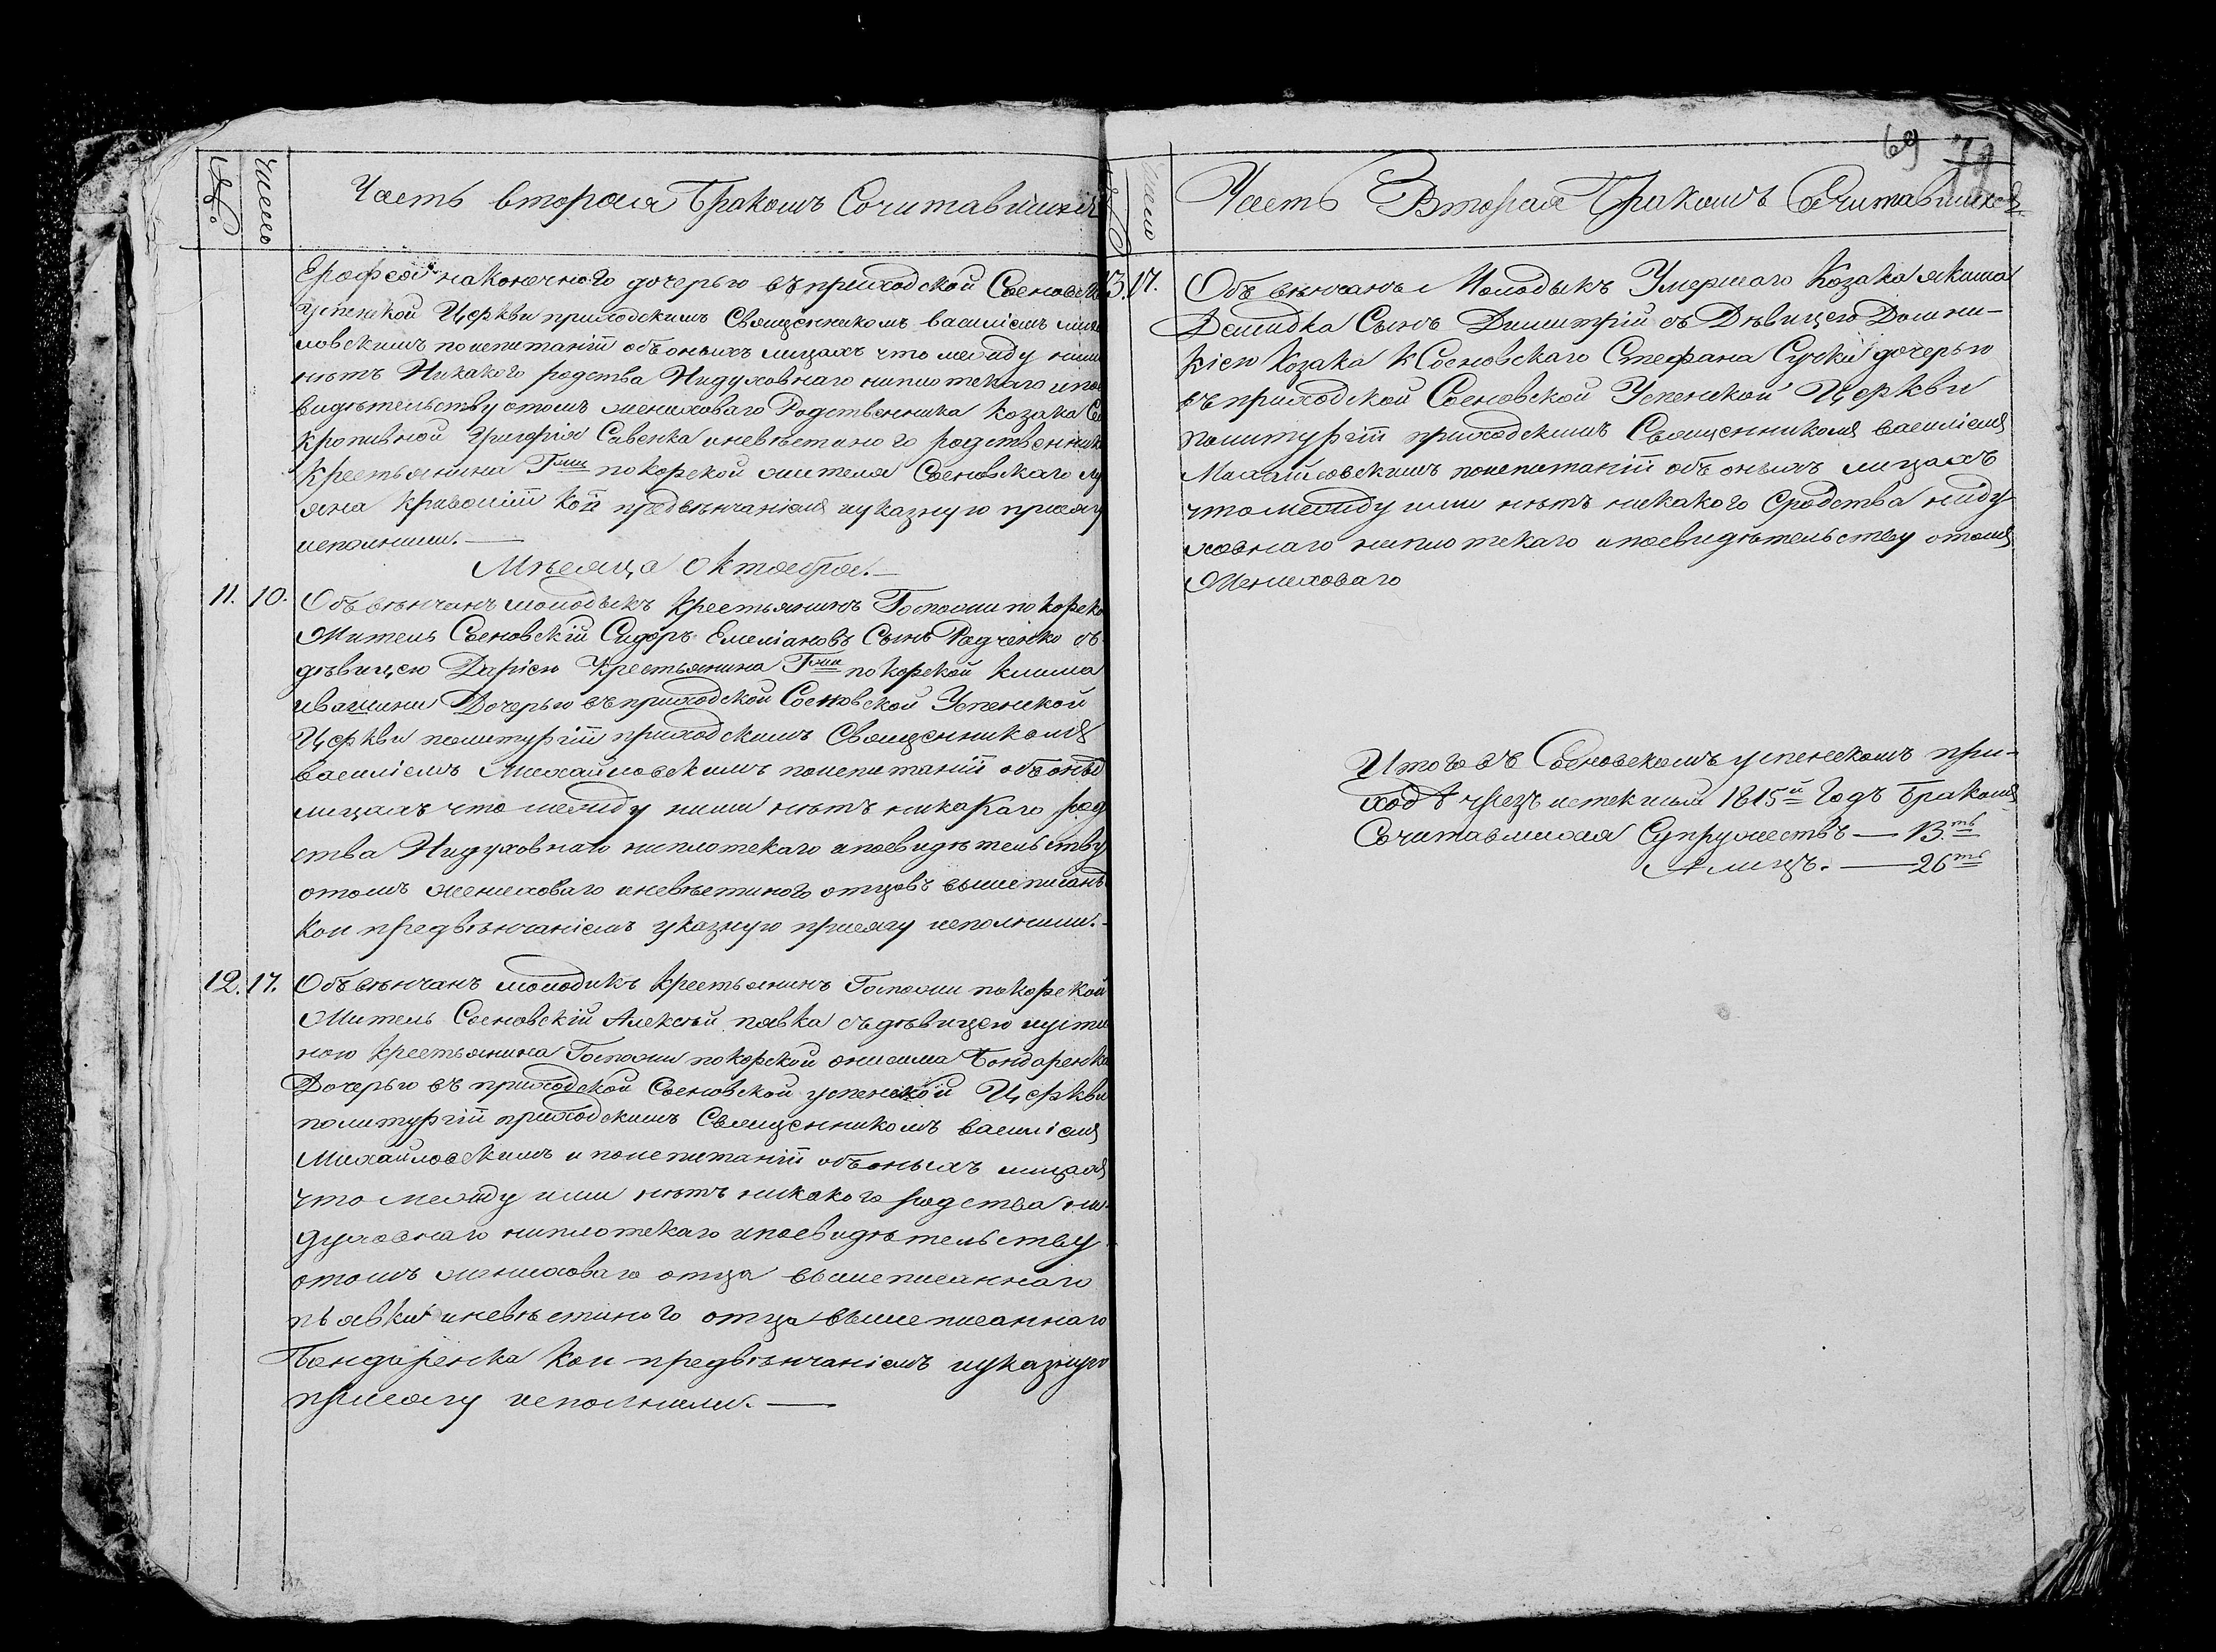 №. Число Часть вторая Бракомъ Сочитавшихся
Ерофея наконечного дочерью въ приходской Сосновской
Успенской Церкви приходскимъ Священникомъ василіемъ миха
ловскимъ поиспитаніи объоныхъ лицахъ что между ними
нѣтъ Никакого родства Нидуховнаго ниплотскаго ипос
видѣтельству отомъ жениховаго Родственника Козака
Кропивной Григорія Савенка иневѣстиного родственника
Крестьянина Гжи покорской жителя Сосновскаго лу
яна Кривошіи Кои предвѣнчаніемъ иуказную присягу
исполнили. —
Мѣсяца Октоября. —
11. 10. Объвѣнчанъ молодыкъ Крестьянинъ Госпожи покорско
Житель Сосновскій Сидоръ Емеліановъ Сынъ Радченко съ
дѣвицею Даріею Крестьянина Гжи покорской Клима
ивашини Дочерью въ приходской Сосновской Успенской
Церкви политургіи приходскимъ Священникомъ
василіемъ Михайловскимъ поиспитаніи объоныхъ
лицахъ что между ними нѣтъ никакаго род
ства Нидуховнаго ниплотскаго ипосвидѣтельству
отомъ жениховаго иневѣстиного отцовъ вышеписанъ
кои предвѣнчаніемъ указную присягу исполнили. —
12. 17. Объвѣнчанъ молодикъ Крестьянинъ Госпожи покорской
Житель Сосновскій Алексѣй пявка съдѣвицею иусти
ною Крестьянина Госпожи покорской онисима Бондаренка
Дочерью въ приходской Сосновской успенской Церкви
политургіи приходскимъ Священникомъ василіемъ
Михайловскимъ и поиспитаніи объоныхъ лицахъ
что между ими нѣтъ никакого родства ни
духовнаго ниплотскаго ипосвидѣтельству
отомъ жениховаго отца вышеписаннаго
пьявки иневѣстиного отца вышеписаннаго
Бондаренка Кои предвѣнчаніемъ иуказную
присягу исполнили. —
69
№ Число Часть Вторая Бракомъ Сочитавшихся
13. 17. Объвѣнчанъ Молодыкъ Умершаго Козака якима
Демидка Сынъ Димитрій съ Дѣвицею Домни-
кіею Козака Сосновскаго Стефана Сучки дочерью
въ приходской Сосновской Успенской Церкви
политургіи приходскимъ Священникомъ василіемъ
Михайловскимъ поиспитаніи объ оныхъ лицахъ
что между ими нѣтъ никакого Сродства ниду
ховнаго ниплотскаго ипосвидѣтельству отомъ
Жениховаго
Итого въ Сосновскомъ успенскомъ при-
ходѣ чрезъ истекшый 1815й Годъ Бракомъ
Сочитавшихся Супружествъ — 13.ть
А лицъ. — 26ть